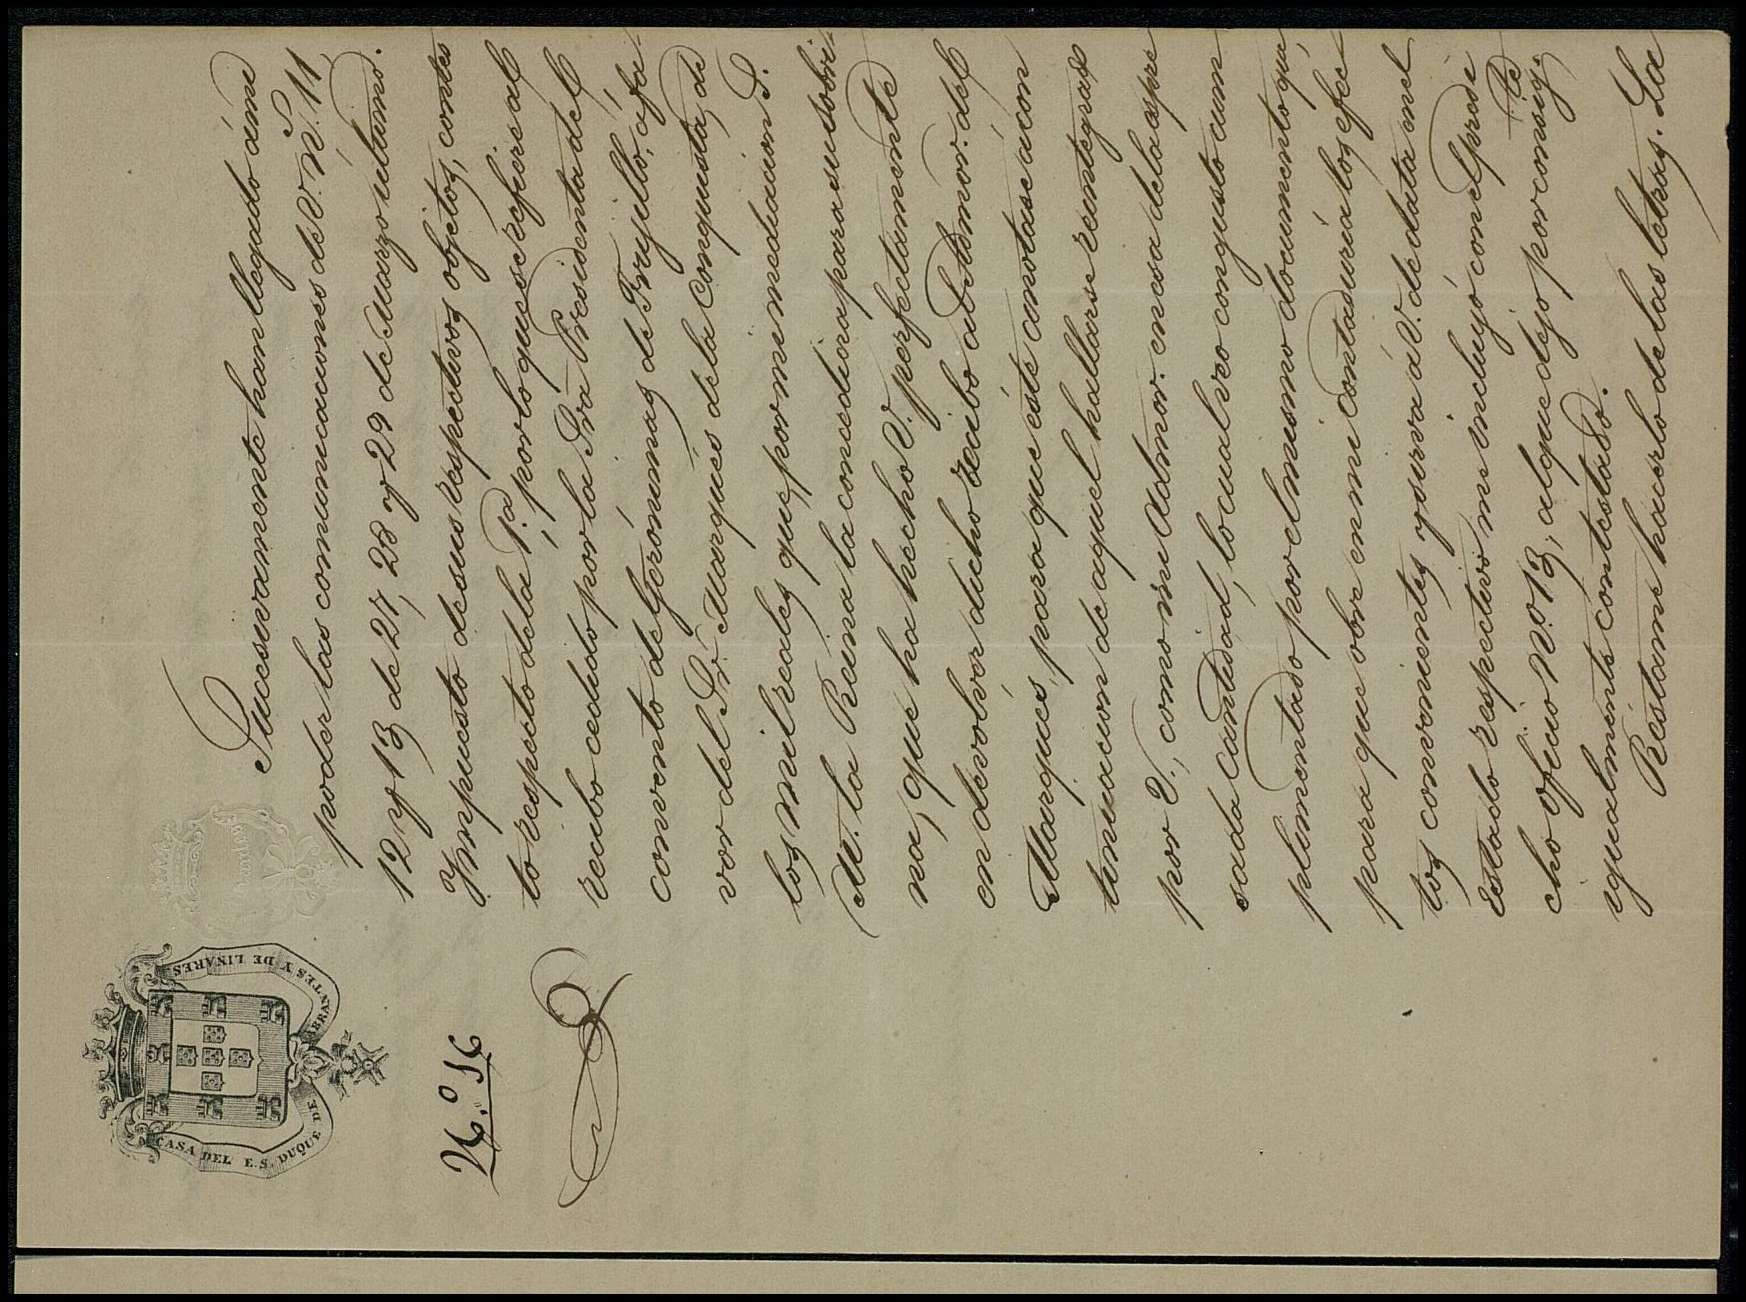 CASA DEL E. S. DUQUE DE ABRANTES Y DE LINARES
N.º 16
Sucesivamente han llegado á mi
poder las comunicaciones de V. N.os 11,
12 y 13 de 27, 28 y 29 de Marzo último.
Ympuesto de sus respectivos objetos, contes
to respecto de la 1.ª, por lo que se refiere al
recibo cedido por la Sra Presidenta del
convento de Gerónimas de Trujillo, á fa
vor del Sr. Marqués de la Conquista, de
los mil reales que, por mi mediacion S.
M. la Reina la concediera para su sobri
na, que ha hecho V. perfectamente
en devolver dicho recibo al Admor. del
Marqués, para que éste en
tinuacion de aquel hallarse reintegrado
por V., como mi Admor. en esa de la espre
sada cantidad, lo cual veo con gusto cum
plimentado por el mismo documento qué,
para que obre en mi Contaduría los efec
tos convenientes y sirva á V. de data en el
Estado respectivo me incluyó con el preci
cho oficio N.º 13, al que dejo por consigte
igualmente contestado.
Réstame hacerlo de las letras. La